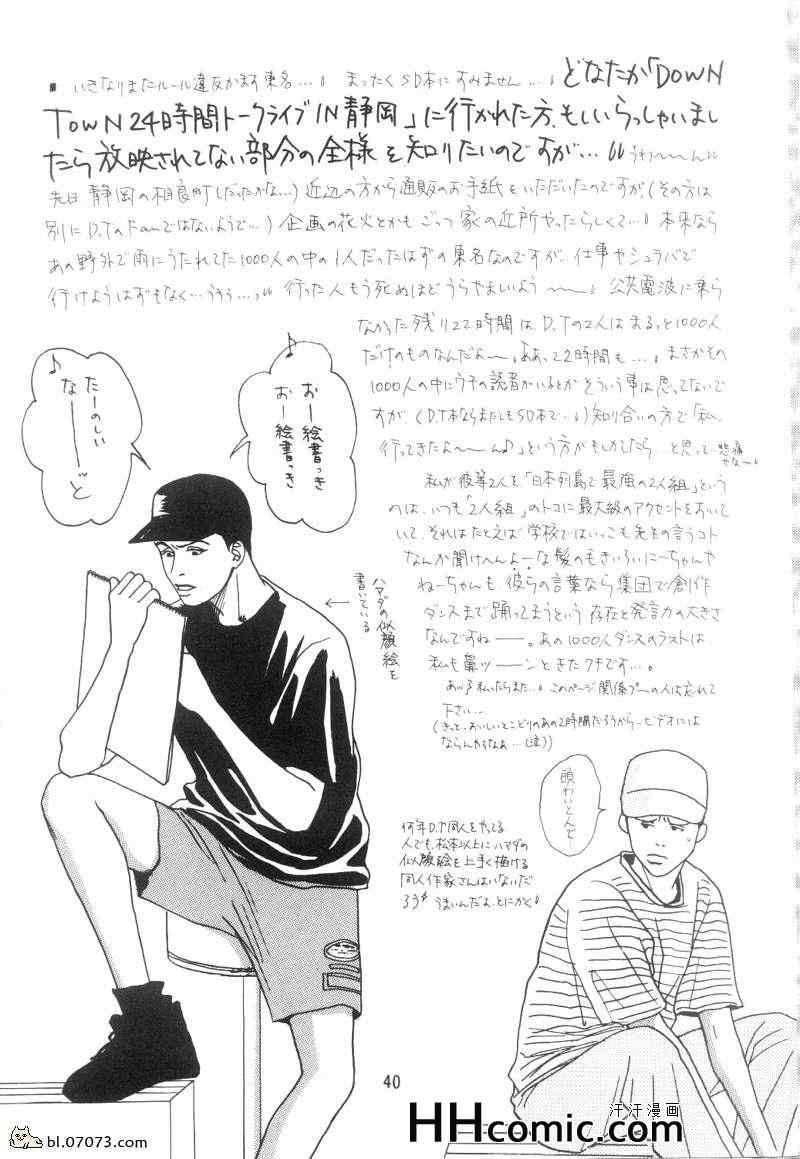 いきなりまたルール違反かます東名…。まったくSD本にすみません…。どなたか「DOWN
TOWN 24時間トークライブ IN 静岡」に行かれた方、もしいらっしゃいまし
たら放映されてない部分の全様を知りたいのですが…
先日静岡の相良町(だったかな…)近辺の方から通販のお手紙をいただいたのですが、(その方は
別にD.TのFanではないようで…)企画の花火とかもごっつ家の近所やったらしくて…。本来なら
あの野外で雨にうたれてた1000人の中の1人だったはずの東名なのですが、仕事やシュラバで
行けようはずもなく…うぅぅ…。行った人もう死ぬほどうらやましいよう〜〜。公共電波に乗ら
なかった残り22時間はD.Tの2人はまるっと1000人
だけのものなんだよ〜。ああっ22時間も…。まさかその
1000人の中にウチの読者がいるとかそういう事は思ってないで
すが(D.T本ならまだしもSD本で…。)知り合いの方で「私、
行ってきたよ〜〜ん♪」という方がもしかしたら…と思って…
私が彼等2人を「日本列島で最強の2人組」という
のは、いつも「2人組」のトコに最大級のアクセントをおいて
いて、それはたとえば学校ではいっこも先生の言うコト
なんか聞けへんよーな髪のもきいろいにーちゃんや
ねーちゃんも彼らの言葉なら集団で創作
ダンスまで踊ってまうという存在と発言力の大きさ
なんですねー。あの1000人ダンスのラストは、
私も鼻ツーンときたクチです…。
あっ私ったらまた…。このページ関係プーの人は忘れて
下さい…
(きっと、おいしいとこどりのあの2時間だろうから、ビデオには
ならんやろなぁ…(涙))
♪
おー絵書っき
おー絵書っき
♪
たーのしい
なーーッと
←ハマダの似顔絵を
書いている
頭わいとんで
何年D.T同人をやってる
人でも、松本以上にハマダの
似顔絵を上手く描ける
同人作家さんはいないだ
ろう。うまいんだよ、とにかく。
40
汗汗漫画
HHcomic.com
bl.07073.com